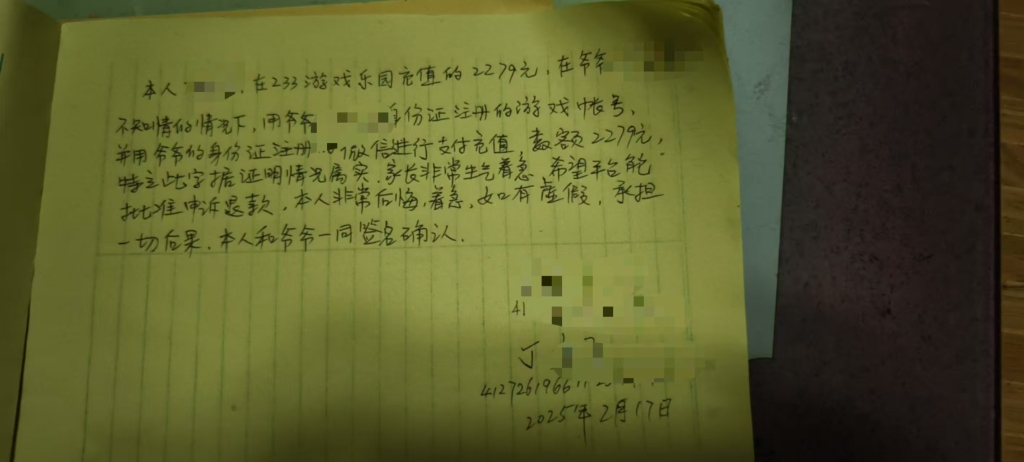 本人 , 在233游戏乐园充值的2279元, 在爷爷
不知情的情况下, 用爷爷 身份证注册的游戏帐号,
并用爷爷的身份证注册 微信进行支付充值, 数额2279元,
特立此字据证明情况属实, 家长非常生气着急, 希望平台能
批准申诉退款, 本人非常后悔, 着急, 如有虚假, 承担
一切后果, 本人和爷爷一同签名确认.
41
4127261966
2025年2月17日